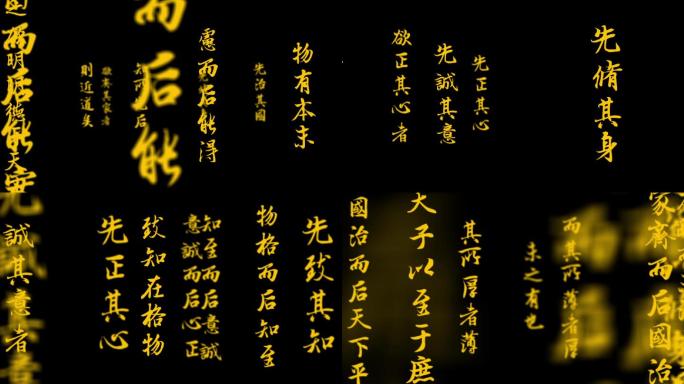 明明德
天
而后能安
則近道矣
欲齊其家者
知所
后
而后能
慮而后能得
先治其國
物有本末
欲正其心者
先誠其意
先正其心
先脩其身
誠其意者
先正其心
致知在格物
意誠而后心正
知至而后意誠
物格而后知至
先致其知
國治而后天下平
天子以至于庶
其所厚者薄
未之有也
而其所薄者厚
家齊而后國治